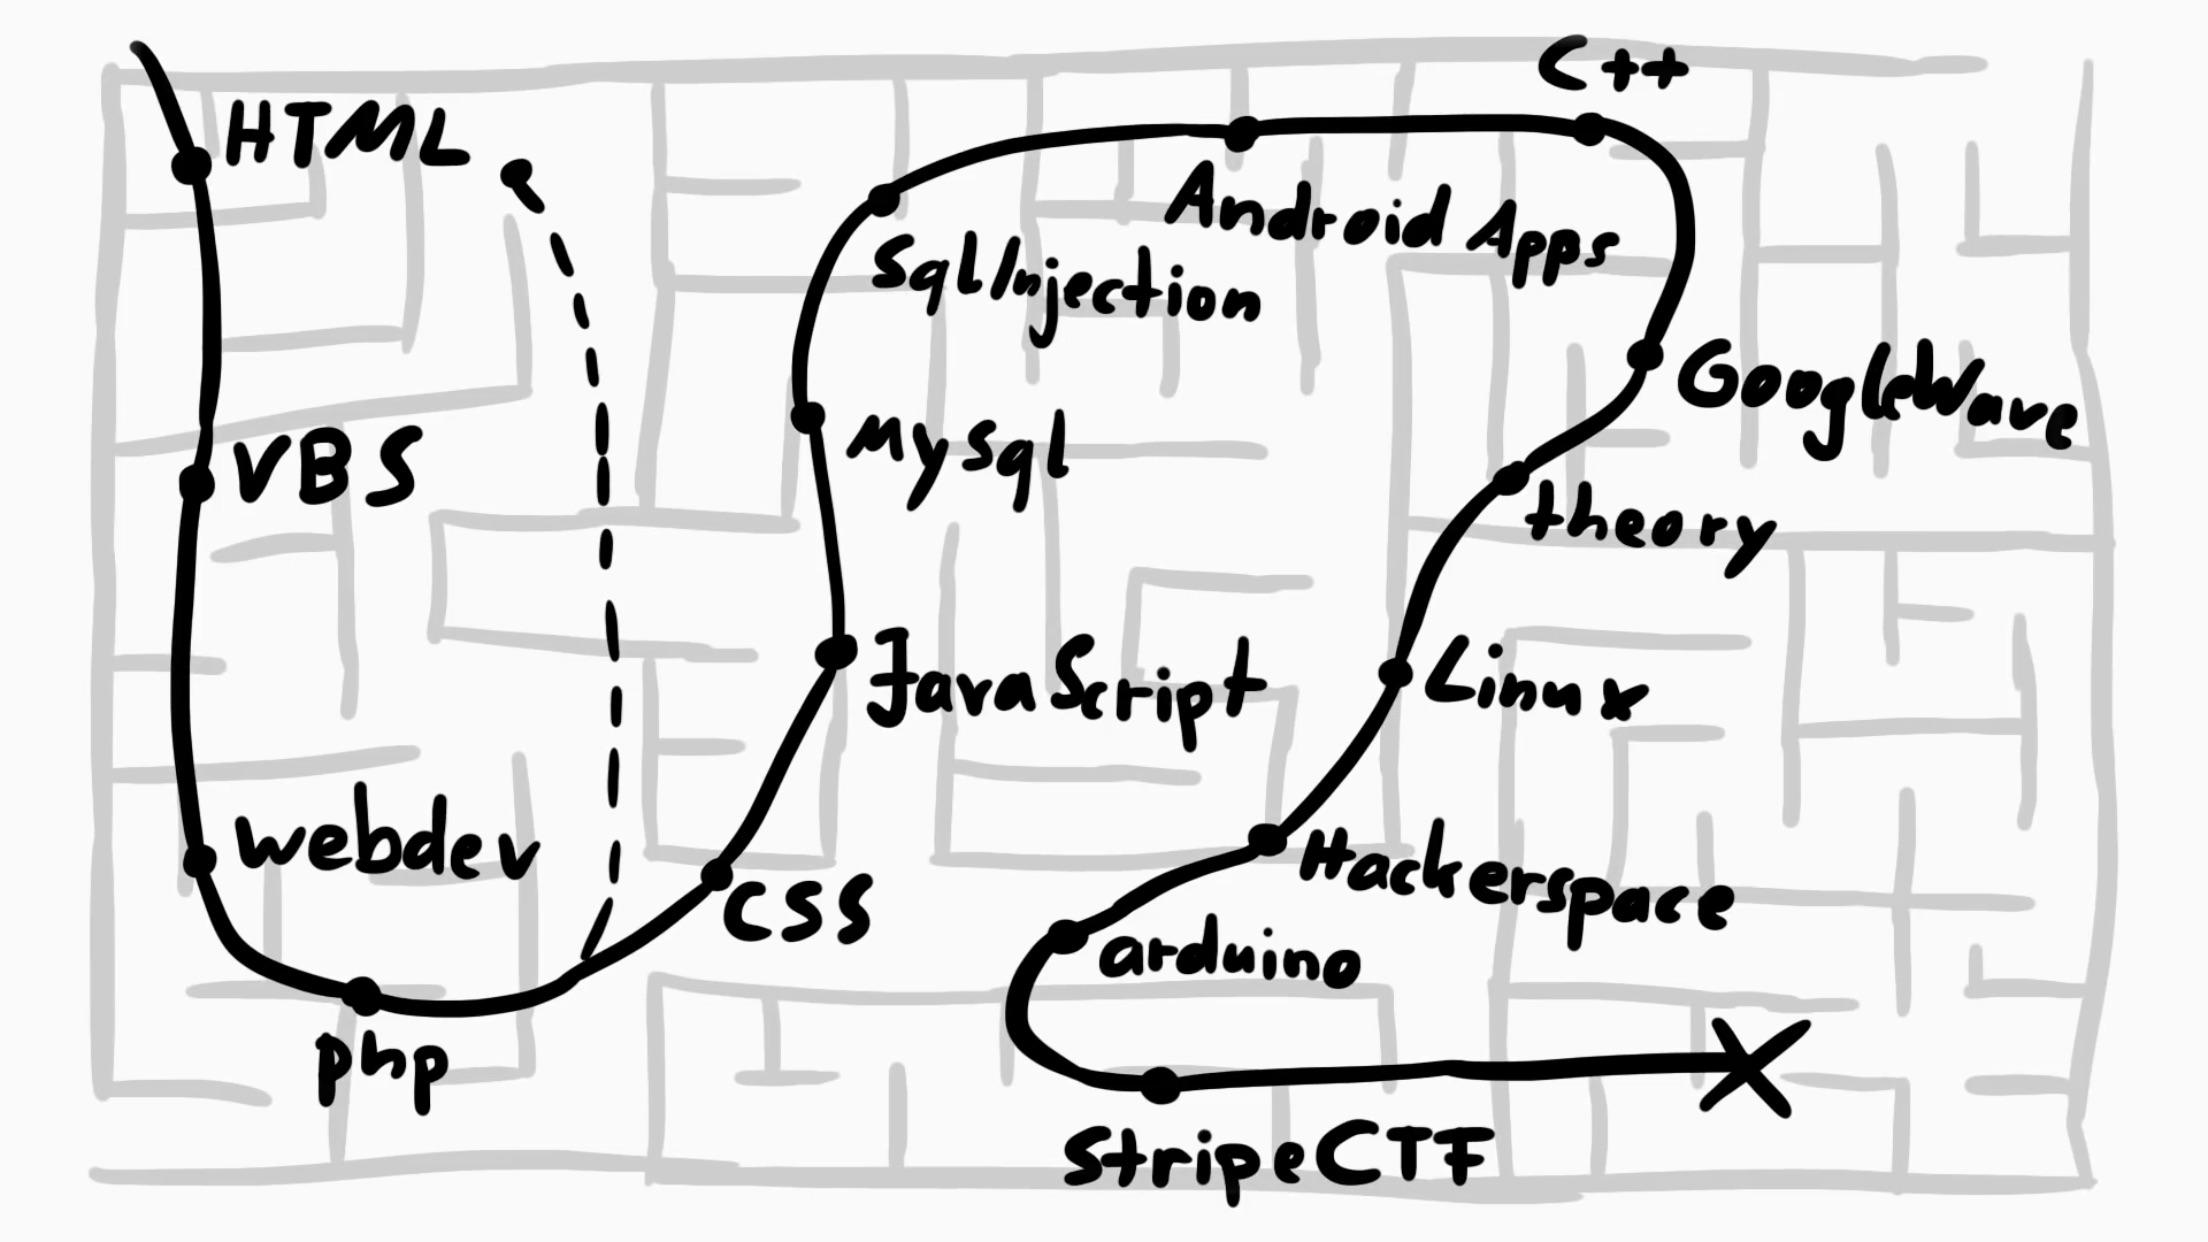 HTML
VBS
webdev
php
CSS
JavaScript
MySql
SqlInjection
Android Apps
C++
GoogleWave
theory
Linux
Hackerspace
arduino
StripeCTF